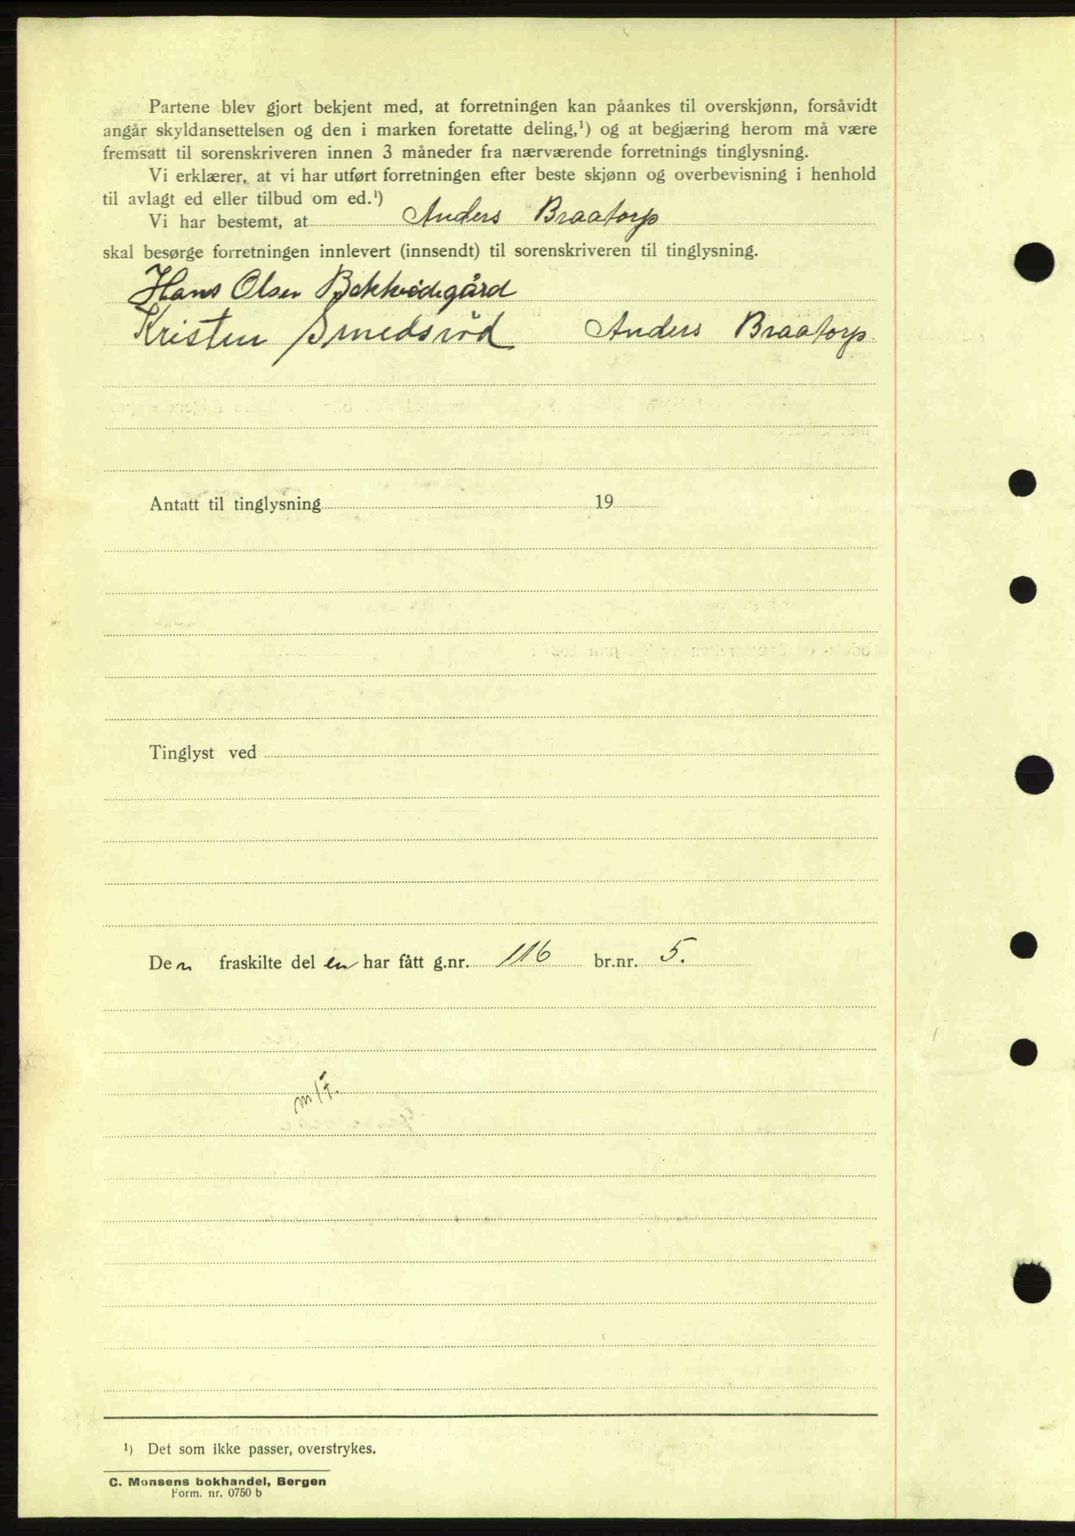 Partene blev gjort bekjent med, at forretningen kan påankes til overskjønn, forsåvidt
angår skyldansettelsen og den i marken foretatte deling,¹) og at begjæring herom må være
fremsatt til sorenskriveren innen 3 måneder fra nærværende forretnings tinglysning.
Vi erklærer, at vi har utført forretningen efter beste skjønn og overbevisning i henhold
til avlagt ed eller tilbud om ed.¹)
Vi har bestemt, at Anders Braatorp
skal besørge forretningen innlevert (innsendt) til sorenskriveren til tinglysning.
Hans Olsen Bekkevdegård
Kristen Smedsröd Anders Braatorp.
Antatt til tinglysning 19
Tinglyst ved
Den fraskilte del en har fått g.nr. 116 br.nr. 5.
¹) Det som ikke passer, overstrykes.
C. Monsens bokhandel, Bergen
Form. nr. 0750 b